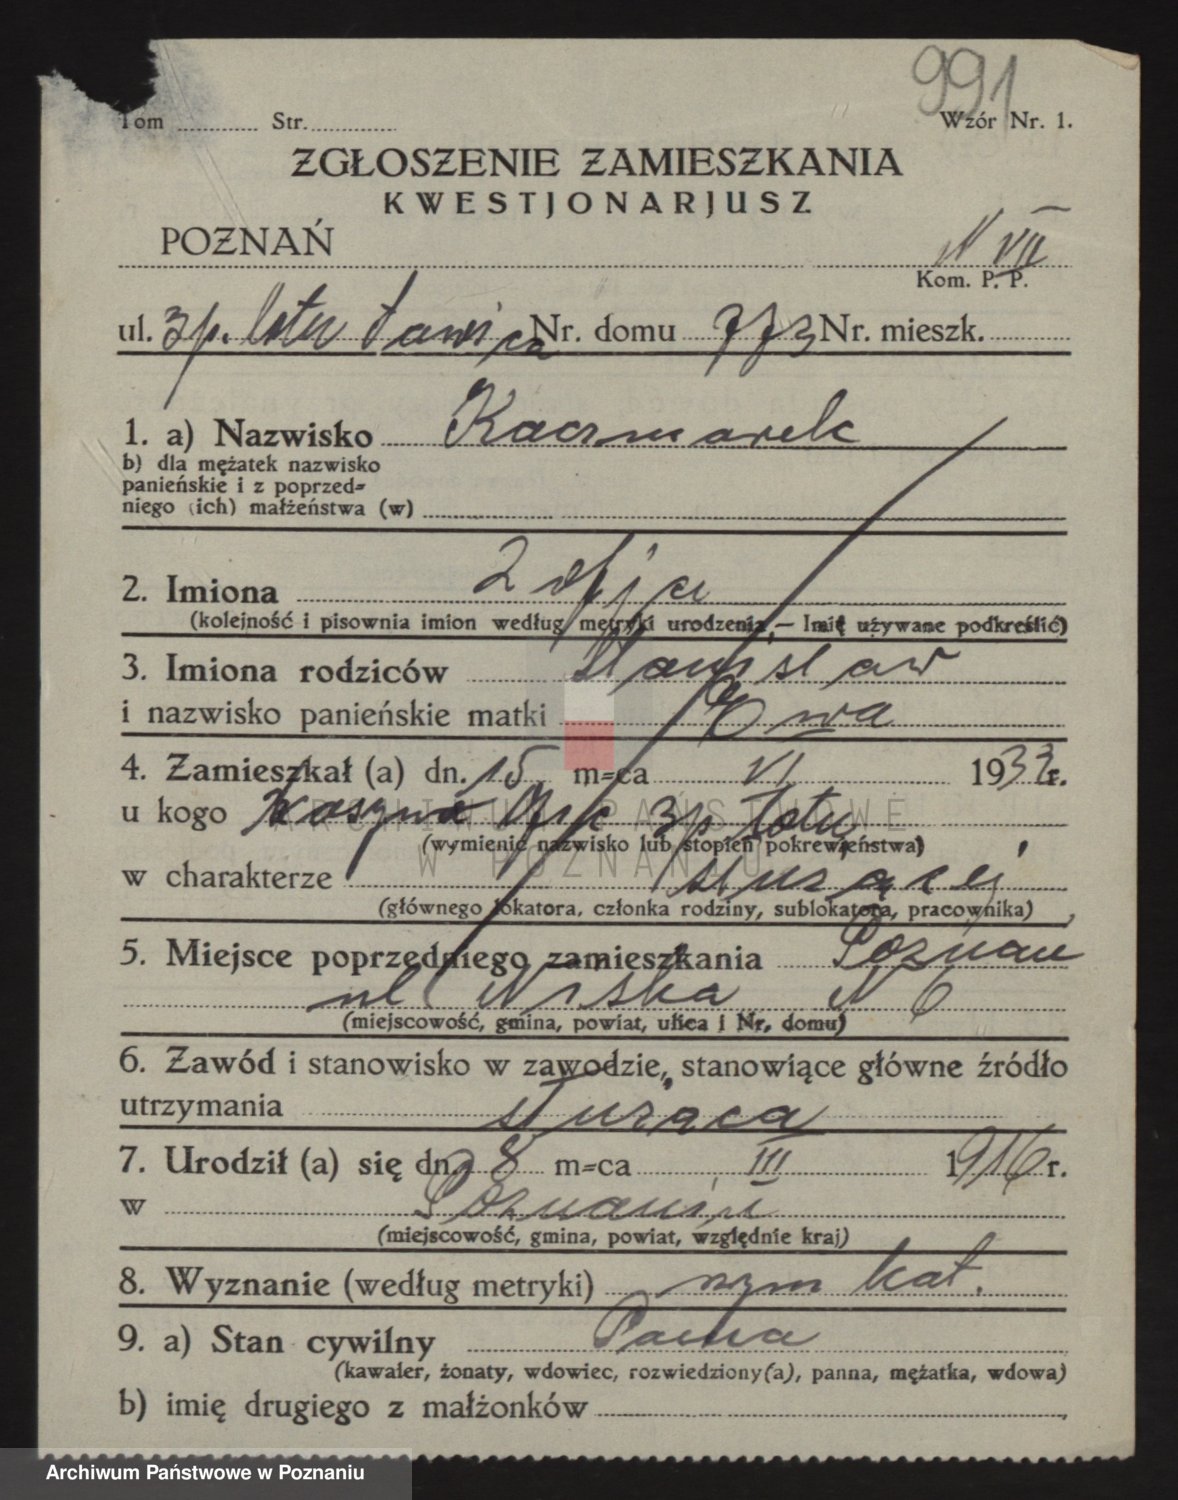 991
Tom Str. Wzór Nr. 1.
ZGŁOSZENIE ZAMIESZKANIA
KWESTJONARJUSZ
POZNAŃ N VII
Kom. P. P.
ul. 3 p. lotn Ławica Nr. domu 773 Nr. mieszk.
1. a) Nazwisko Kaczmarek
b) dla mężatek nazwisko
panieńskie i z poprzed=
niego (ich) małżeństwa (w)
2. Imiona Zofja
(kolejność i pisownia imion według metryki urodzenia, — Imię używane podkreślić)
3. Imiona rodziców Stanisław
i nazwisko panieńskie matki Ewa
4. Zamieszkał (a) dn. 15 m=ca VI 1933 r.
u kogo 3 p lotn
(wymienić nazwisko lub stopień pokrewieństwa)
w charakterze służącej
(głównego lokatora, członka rodziny, sublokatora, pracownika)
5. Miejsce poprzedniego zamieszkania Poznań
ul Niska N 6
(miejscowość, gmina, powiat, ulica i Nr. domu)
6. Zawód i stanowisko w zawodzie, stanowiące główne źródło
utrzymania służąca
7. Urodził (a) się dn. 8 m=ca III 1916 r.
w Poznaniu
(miejscowość, gmina, powiat, względnie kraj)
8. Wyznanie (według metryki) rzym kat.
9. a) Stan cywilny Panna
(kawaler, żonaty, wdowiec, rozwiedziony(a), panna, mężatka, wdowa)
b) imię drugiego z małżonków
ARCHIWUM PAŃSTWOWE
W POZNANIU
Archiwum Państwowe w Poznaniu